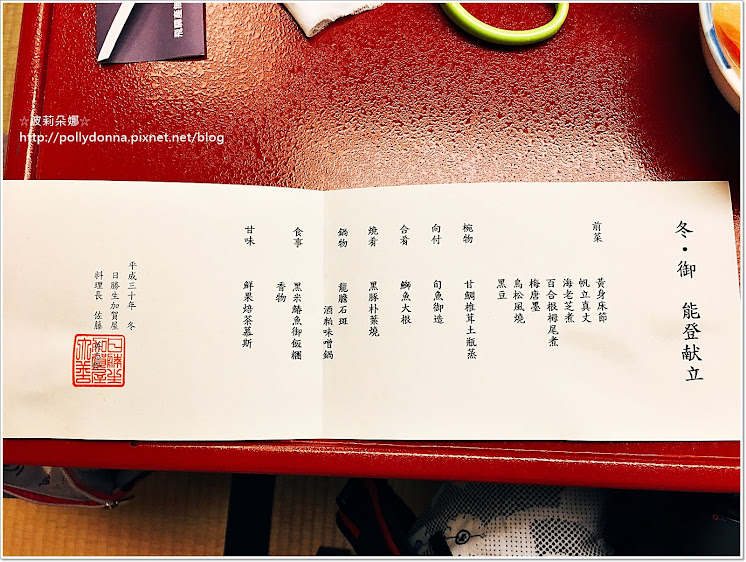 ☆波莉朵娜☆
http://pollydonna.pixnet.net/blog
冬・御 能登献立
前菜
黃身床節
帆立真丈
海老芝煮
百合根栂尾煮
梅唐墨
烏松風燒
黑豆
椀物
甘鯛椎茸土瓶蒸
向付
旬魚御造
合肴
鰤魚大根
燒肴
黑豚朴葉燒
鍋物
龍膽石斑
酒粕味噌鍋
食事
黑米鰆魚御飯糰
香物
甘味
鮮果焙茶慕斯
平成三十年 冬
日勝生加賀屋
料理長 佐藤